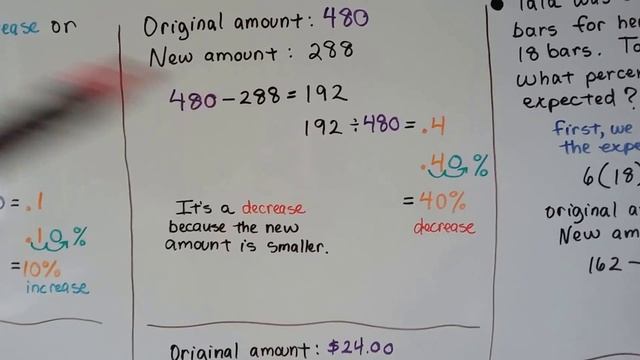 ease or
= .1
.10%
= 10%
increase
Original amount: 480
New amount: 288
480 - 288 = 192
192 ÷ 480 = .4
.40%
= 40%
decrease
It's a decrease
because the new
amount is smaller.
Original amount: $24.00
bars for he
18 bars. To
what perce
expected?
first, we
the expe
6(18)
original a
New am
162 -